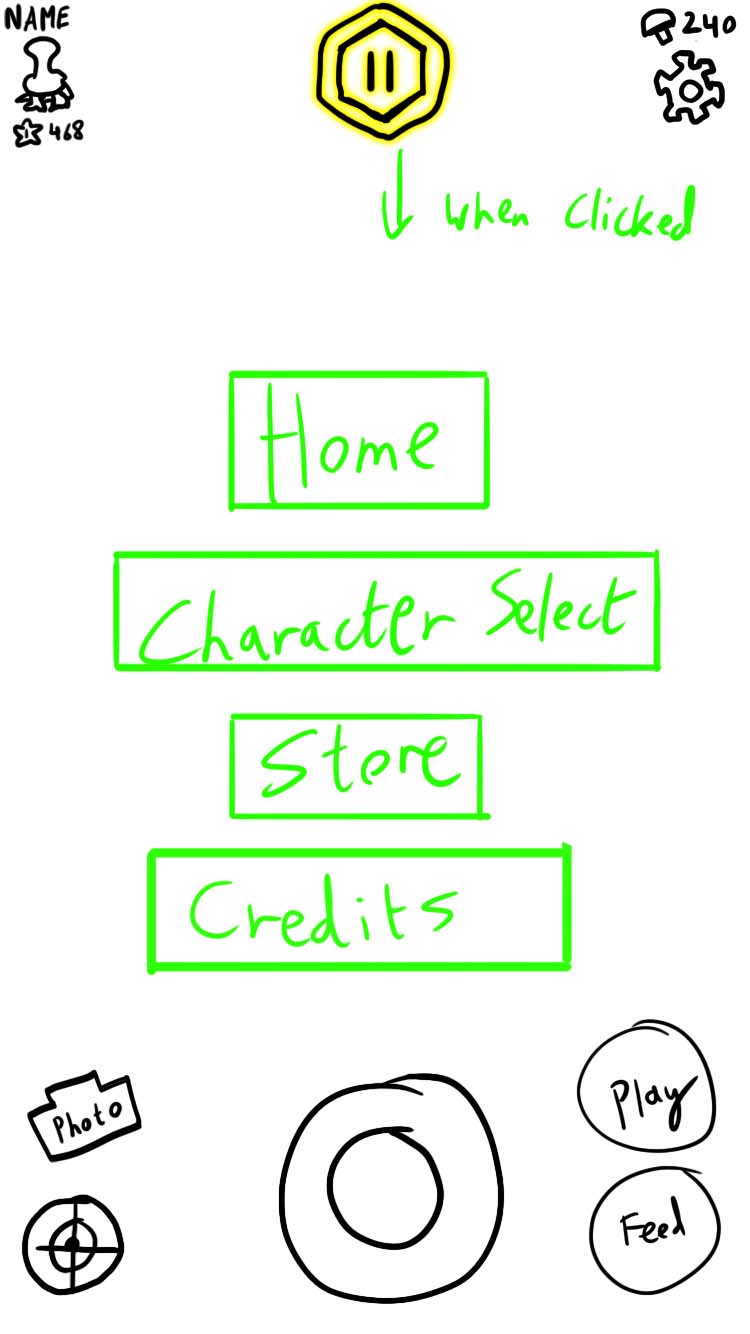 NAME
240
468
when clicked
Home
Character Select
Store
Credits
Photo
Play
Feed